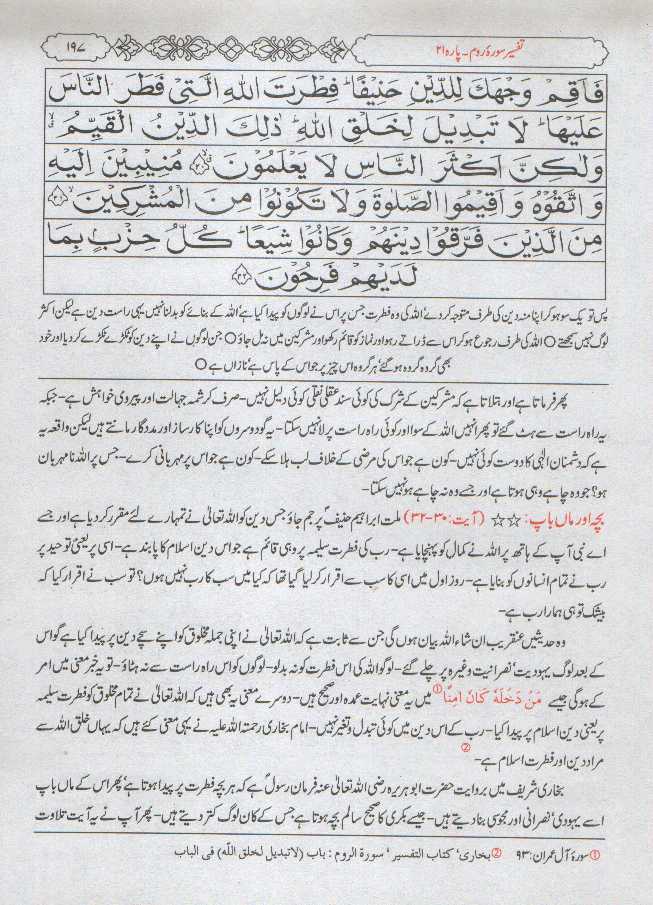 تفسیر سورۂ روم ۔ پارہ ۲۱
۱۹۷
فَاَقِمْ وَجْهَكَ لِلدِّيْنِ حَنِيْفًا ؕ فِطْرَتَ اللّٰهِ الَّتِيْ فَطَرَ النَّاسَ
عَلَيْهَا ؕ لَا تَبْدِيْلَ لِخَلْقِ اللّٰهِ ؕ ذٰلِكَ الدِّيْنُ الْقَيِّمُ ۙ
وَلٰكِنَّ اَكْثَرَ النَّاسِ لَا يَعْلَمُوْنَ ۙ۳۰ مُنِيْبِيْنَ اِلَيْهِ
وَاتَّقُوْهُ وَاَقِيْمُوا الصَّلٰوةَ وَلَا تَكُوْنُوْا مِنَ الْمُشْرِكِيْنَ ۙ۳۱
مِنَ الَّذِيْنَ فَرَّقُوْا دِيْنَهُمْ وَكَانُوْا شِيَعًا ؕ كُلُّ حِزْبٍۭ بِمَا
لَدَيْهِمْ فَرِحُوْنَ ۳۲
پس تو یک سو ہو کر اپنا منہ دین کی طرف متوجہ کر دے ٗ اللہ کی وہ فطرت جس پر اس نے لوگوں کو پیدا کیا ہے ٗ اللہ کے بنائے کو بدلنا نہیں یہی راست دین ہے لیکن اکثر
لوگ نہیں سمجھتے ○ اللہ کی طرف رجوع ہو کر اس سے ڈراتے رہو اور نماز کو قائم رکھو اور مشرکین میں نہ مل جاؤ ○ جن لوگوں نے اپنے دین کو ٹکڑے ٹکڑے کر دیا اور خود
بھی گروہ گروہ ہو گئے ٗ ہر گروہ اس چیز پر جو اس کے پاس ہے ٗ نازاں ہے ○
پھر فرماتا ہے اور بتلاتا ہے کہ مشرکین کے شرک کی کوئی سند عقلی نقلی کوئی دلیل نہیں - صرف کرشمہ جہالت اور پیروی خواہش ہے - جبکہ
یہ راہ راست سے ہٹ گئے تو پھر انہیں اللہ کے سوا اور کوئی راہ راست پر لا نہیں سکتا - یہ گو دوسروں کو اپنا کارساز اور مددگار مانتے ہیں لیکن واقعہ یہ
ہے کہ دشمنان الٰہی کا دوست کوئی نہیں - کون ہے جو اس کی مرضی کے خلاف لب ہلا سکے - کون ہے جو اس پر مہربانی کرے - جس پر اللہ نا مہربان
ہو؟ جو وہ چاہے وہی ہوتا ہے اور جسے وہ نہ چاہے ہو نہیں سکتا -
بچہ اور ماں باپ : ☆☆ (آیت: ۳۰-۳۲) ملت ابراہیم حنیفؑ پر جم جاؤ جس دین کو اللہ تعالیٰ نے تمہارے لئے مقرر کر دیا ہے اور جسے
اے نبی آپ کے ہاتھ پر اللہ نے کمال کو پہنچایا ہے - رب کی فطرت سلیمہ پر وہی قائم ہے جو اس دین اسلام کا پابند ہے - اسی پر یعنی توحید پر
رب نے تمام انسانوں کو بنایا ہے - روز اول میں اسی کا سب سے اقرار کر لیا گیا تھا کہ کیا میں سب کا رب نہیں ہوں؟ تو سب نے اقرار کیا کہ
بیشک تو ہی ہمارا رب ہے -
وہ حدیثیں عنقریب ان شاء اللہ بیان ہوں گی جن سے ثابت ہے کہ اللہ تعالیٰ نے اپنی جملہ مخلوق کو اپنے سچے دین پر پیدا کیا ہے گو اس
کے بعد لوگ یہودیت ٗ نصرانیت وغیرہ پر چلے گئے - لوگو اللہ کی اس فطرت کو نہ بدلو - لوگوں کو اس راہ راست سے نہ ہٹاؤ - تو یہ خبر معنی میں امر
کے ہوگی جیسے مَنْ دَخَلَهٗ كَانَ اٰمِنًا ① میں یہ معنی نہایت عمدہ اور صحیح ہیں - دوسرے معنی یہ بھی ہیں کہ اللہ تعالیٰ نے تمام مخلوق کو فطرت سلیمہ
پر یعنی دین اسلام پر پیدا کیا - رب کے اس دین میں کوئی تبدل و تغیر نہیں - امام بخاری رحمتہ اللہ علیہ نے یہی معنی کئے ہیں کہ یہاں خلق اللہ سے
مراد دین اور فطرت اسلام ہے - ②
بخاری شریف میں بروایت حضرت ابو ہریرہ رضی اللہ تعالیٰ عنہ فرمان رسولؐ ہے کہ ہر بچہ فطرت پر پیدا ہوتا ہے ٗ پھر اس کے ماں باپ
اسے یہودی ٗ نصرانی اور مجوسی بنا دیتے ہیں - جیسے بکری کا صحیح سالم بچہ ہوتا ہے جس کے کان لوگ کتر دیتے ہیں - پھر آپ نے یہ آیت تلاوت
① سورۂ آل عمران: ۹۳ ② بخاری ٗ کتاب التفسیر ٗ سورۃ الروم : باب (لا تبدیل لخلق اللّٰہ) فی الباب